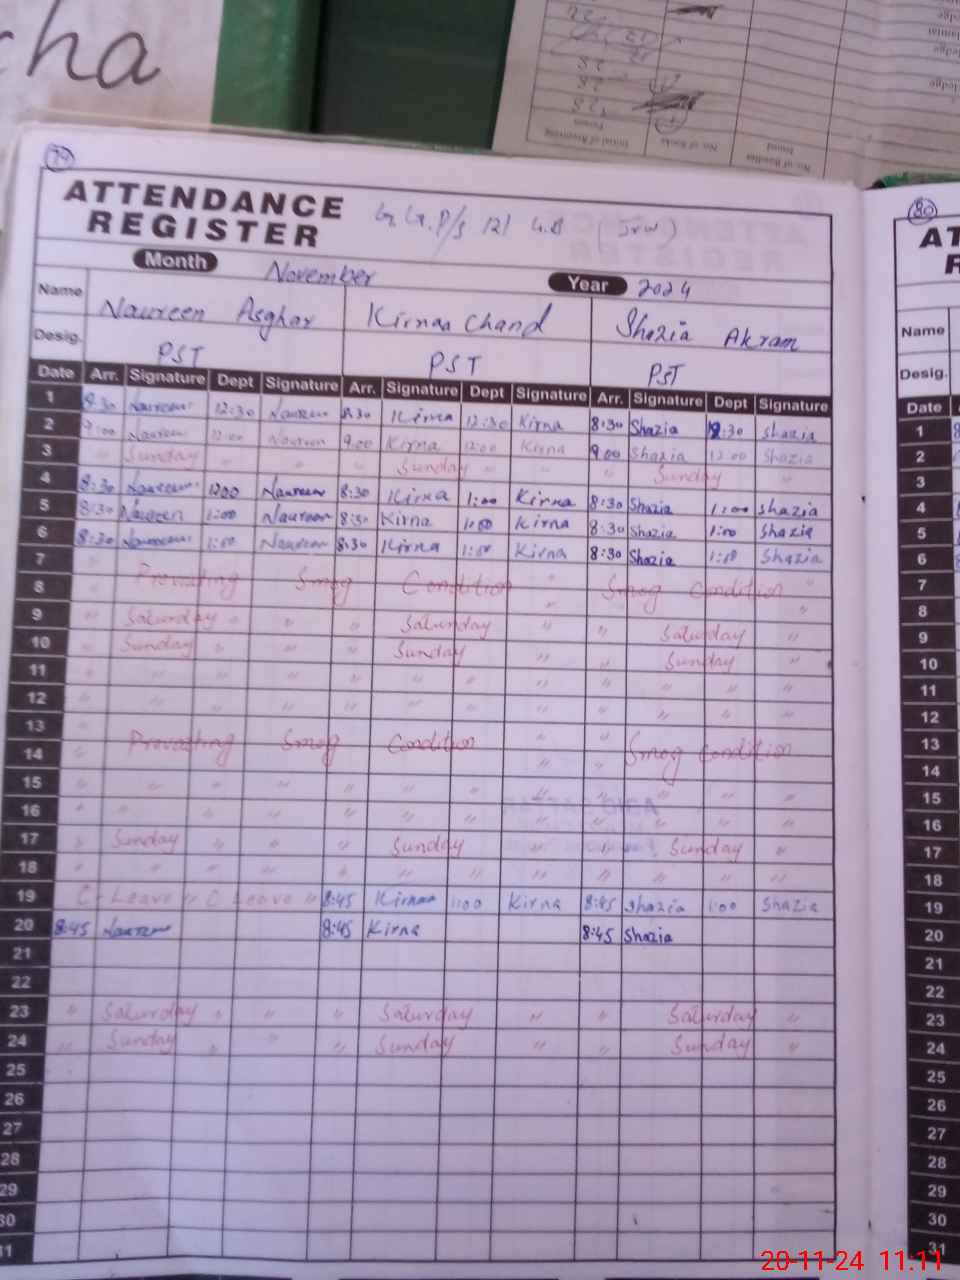 cha
79
ATTENDANCE
REGISTER
P/S 121 G.B
Month November Year 2024
Name Naureen Asghar Kirnaa Chand Shazia Akram
Desig. PST PST PST
Date Arr. Signature Dept Signature Arr. Signature Dept Signature Arr. Signature Dept Signature
1 8:30 Naureen 12:30 Naureen 8:30 Kirna 12:30 Kirna 8:30 Shazia 12:30 Shazia
2 9:00 Naureen 12:00 Naureen 9:00 Kirna 12:00 Kirna 9:00 Shazia 12:00 Shazia
3 " Sunday " " " Sunday " " " Sunday "
4 8:30 Naureen 1200 Naureen 8:30 Kirna 1:00 Kirna 8:30 Shazia 1:00 Shazia
5 8:30 Naureen 1:00 Naureen 8:30 Kirna 1:00 Kirna 8:30 Shazia 1:00 Shazia
6 8:30 Naureen 1:00 Naureen 8:30 Kirna 1:00 Kirna 8:30 Shazia 1:00 Shazia
7 " Prevasting Smog Condition " Smog Condition "
8 " " "
9 " Saturday " " " Saturday " " Saturday "
10 " Sunday " " " Sunday " " Sunday "
11 " " " " " " " " " " "
12 " " " " " " " " " " "
13 " Prevasting Smog Condition " Smog Condition
14 " " "
15 " " " " " " " " " " "
16 " " " " " " " " " " "
17 " Sunday " " " Sunday " " Sunday "
18 " " " " " " " " " " "
19 C-Leave " C Leave " 8:45 Kirnaa 1:00 Kirna 8:45 Shazia 1:00 Shazia
20 8:45 Naureen 8:45 Kirna 8:45 Shazia
21
22
23 " Saturday " " " Saturday " " Saturday "
24 " Sunday " " " Sunday " " Sunday "
25
26
27
28
29
30
31
80
AT
R
Name
Desig.
Date
1
2
3
4
5
6
7
8
9
10
11
12
13
14
15
16
17
18
19
20
21
22
23
24
25
26
27
28
29
30
31
20-11-24 11:11